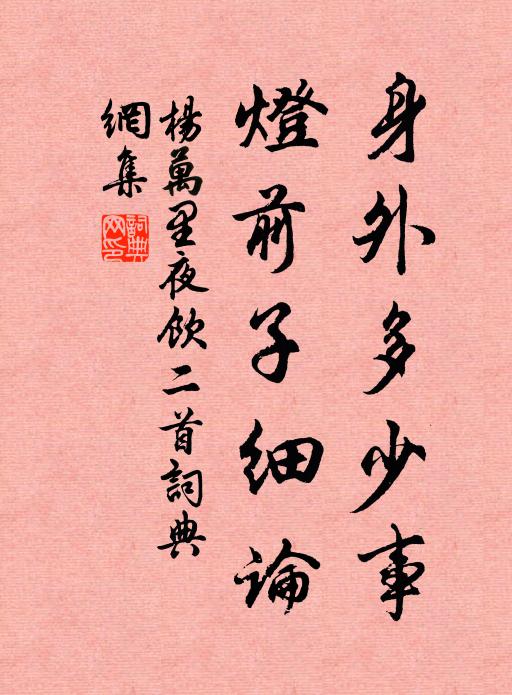 身外多少事
燈前子細論
楊萬里夜飲二首詞典
網集
詞典網印